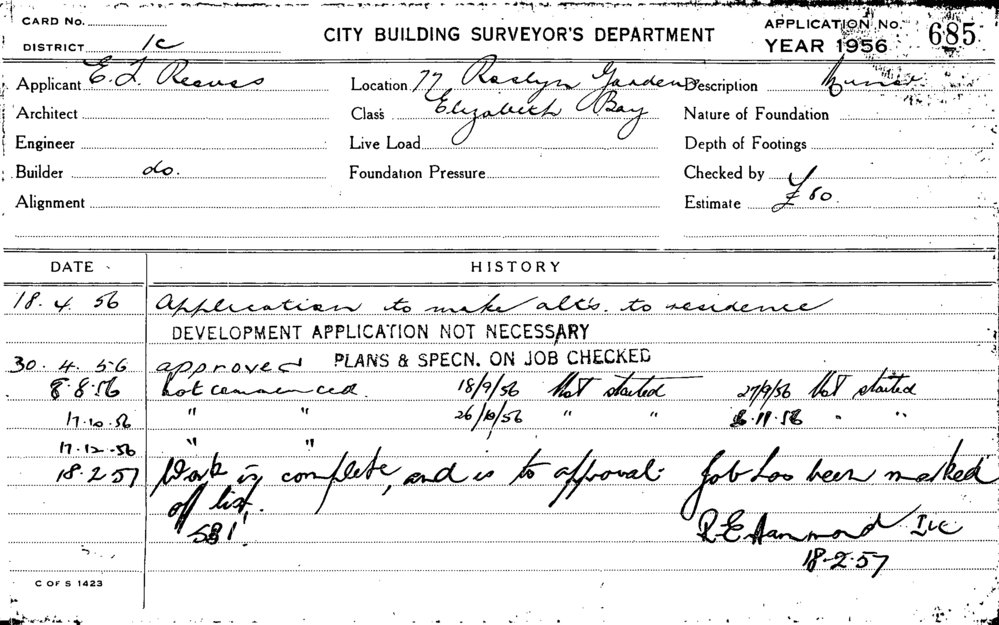 CARD No.
DISTRICT 1c
CITY BUILDING SURVEYOR'S DEPARTMENT
APPLICATION No. 685
YEAR 1956
Applicant E. L. Reeves Location 77 Roslyn Gardens Description
Architect Class Elizabeth Bay Nature of Foundation
Engineer Live Load Depth of Footings
Builder do. Foundation Pressure Checked by
Alignment Estimate £80.
DATE HISTORY
18. 4. 56 Application to make alts. to residence
DEVELOPMENT APPLICATION NOT NECESSARY
30. 4. 56 approved PLANS & SPECN. ON JOB CHECKED
8.8.56 Not commenced. 18/9/56 Not started 27/9/56 Not started
17.10.56 " " 26/10/56 " " .11.56 " "
17.12.56 " "
18.2.57 Work is complete, and is to approval. Job has been marked
off list.
R E Hammond
18.2.57
C OF S 1423